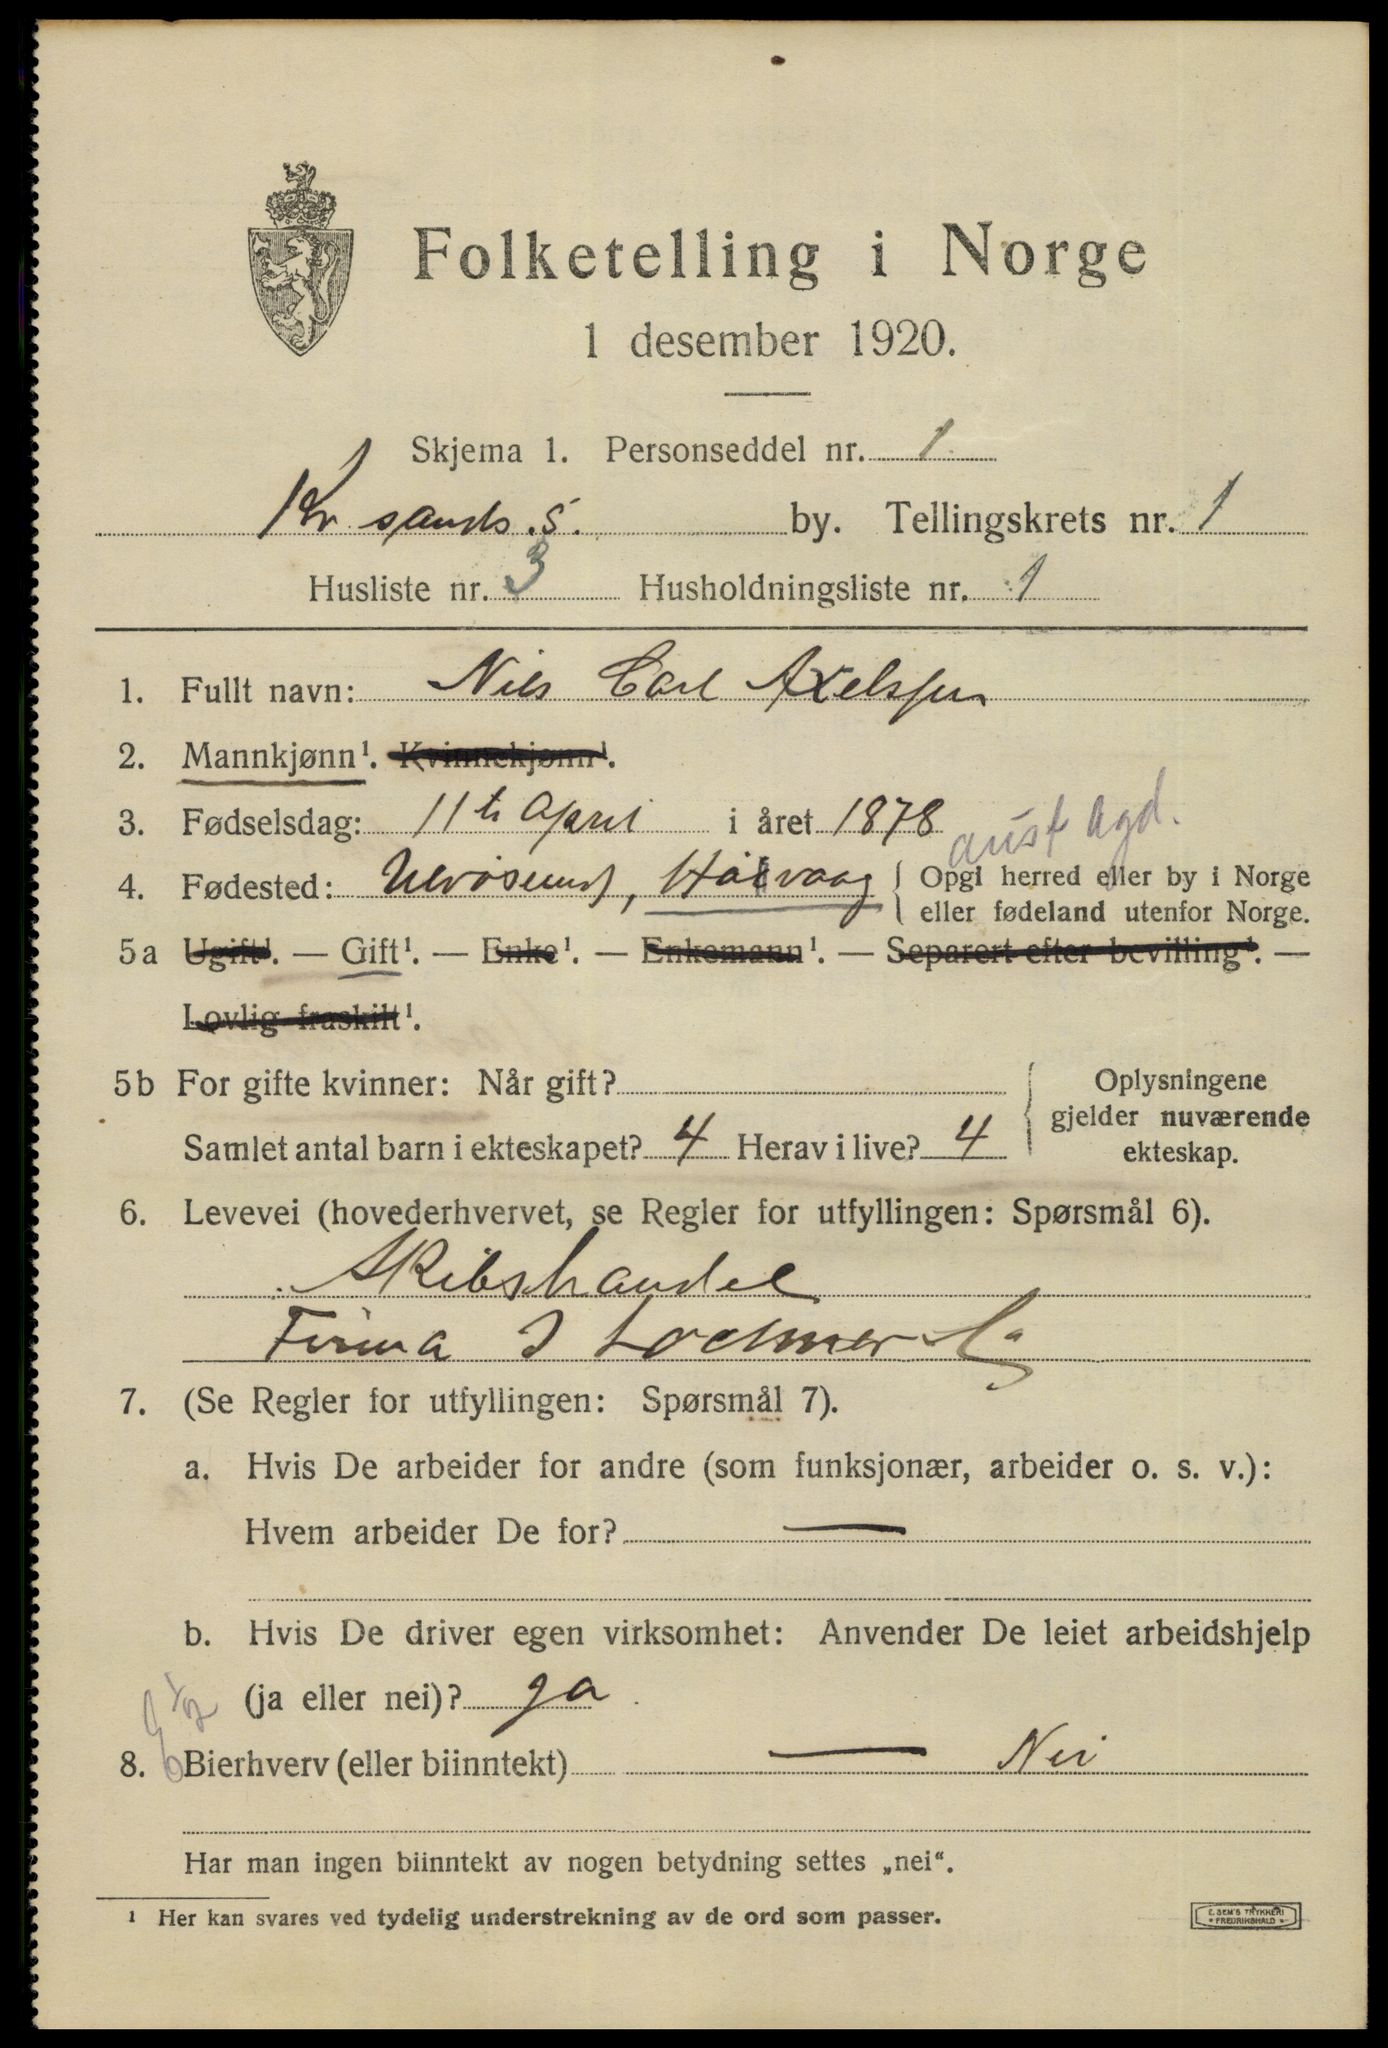 Folketelling i Norge
1 desember 1920.
Skjema 1. Personseddel nr. 1
Kr sands. S. by. Tellingskrets nr. 1
Husliste nr. 3 Husholdningsliste nr. 1
1. Fullt navn: Nils Carl Axelsen
2. Mannkjønn¹. Kvinnekjønn¹.
3. Fødselsdag: 11te April i året 1878
aust Agd.
4. Fødested: Ulvøsund, Høivaag { Opgi herred eller by i Norge
eller fødeland utenfor Norge.
5a Ugift¹. — Gift¹. — Enke¹. — Enkemann¹. — Separert efter bevilling¹. —
Lovlig fraskilt¹.
5b For gifte kvinner: Når gift?
Samlet antal barn i ekteskapet? 4 Herav i live? 4
Oplysningene
gjelder nuværende
ekteskap.
6. Levevei (hovederhvervet, se Regler for utfyllingen: Spørsmål 6).
Skibshandel
Firma I Lochner & Co
7. (Se Regler for utfyllingen: Spørsmål 7).
a. Hvis De arbeider for andre (som funksjonær, arbeider o. s. v.):
Hvem arbeider De for? —
b. Hvis De driver egen virksomhet: Anvender De leiet arbeidshjelp
(ja eller nei)? ja
8. Bierhverv (eller biinntekt) — Nei
Har man ingen biinntekt av nogen betydning settes „nei“.
¹ Her kan svares ved tydelig understrekning av de ord som passer.
E. SEM'S TRYKKERI
FREDRIKSHALD